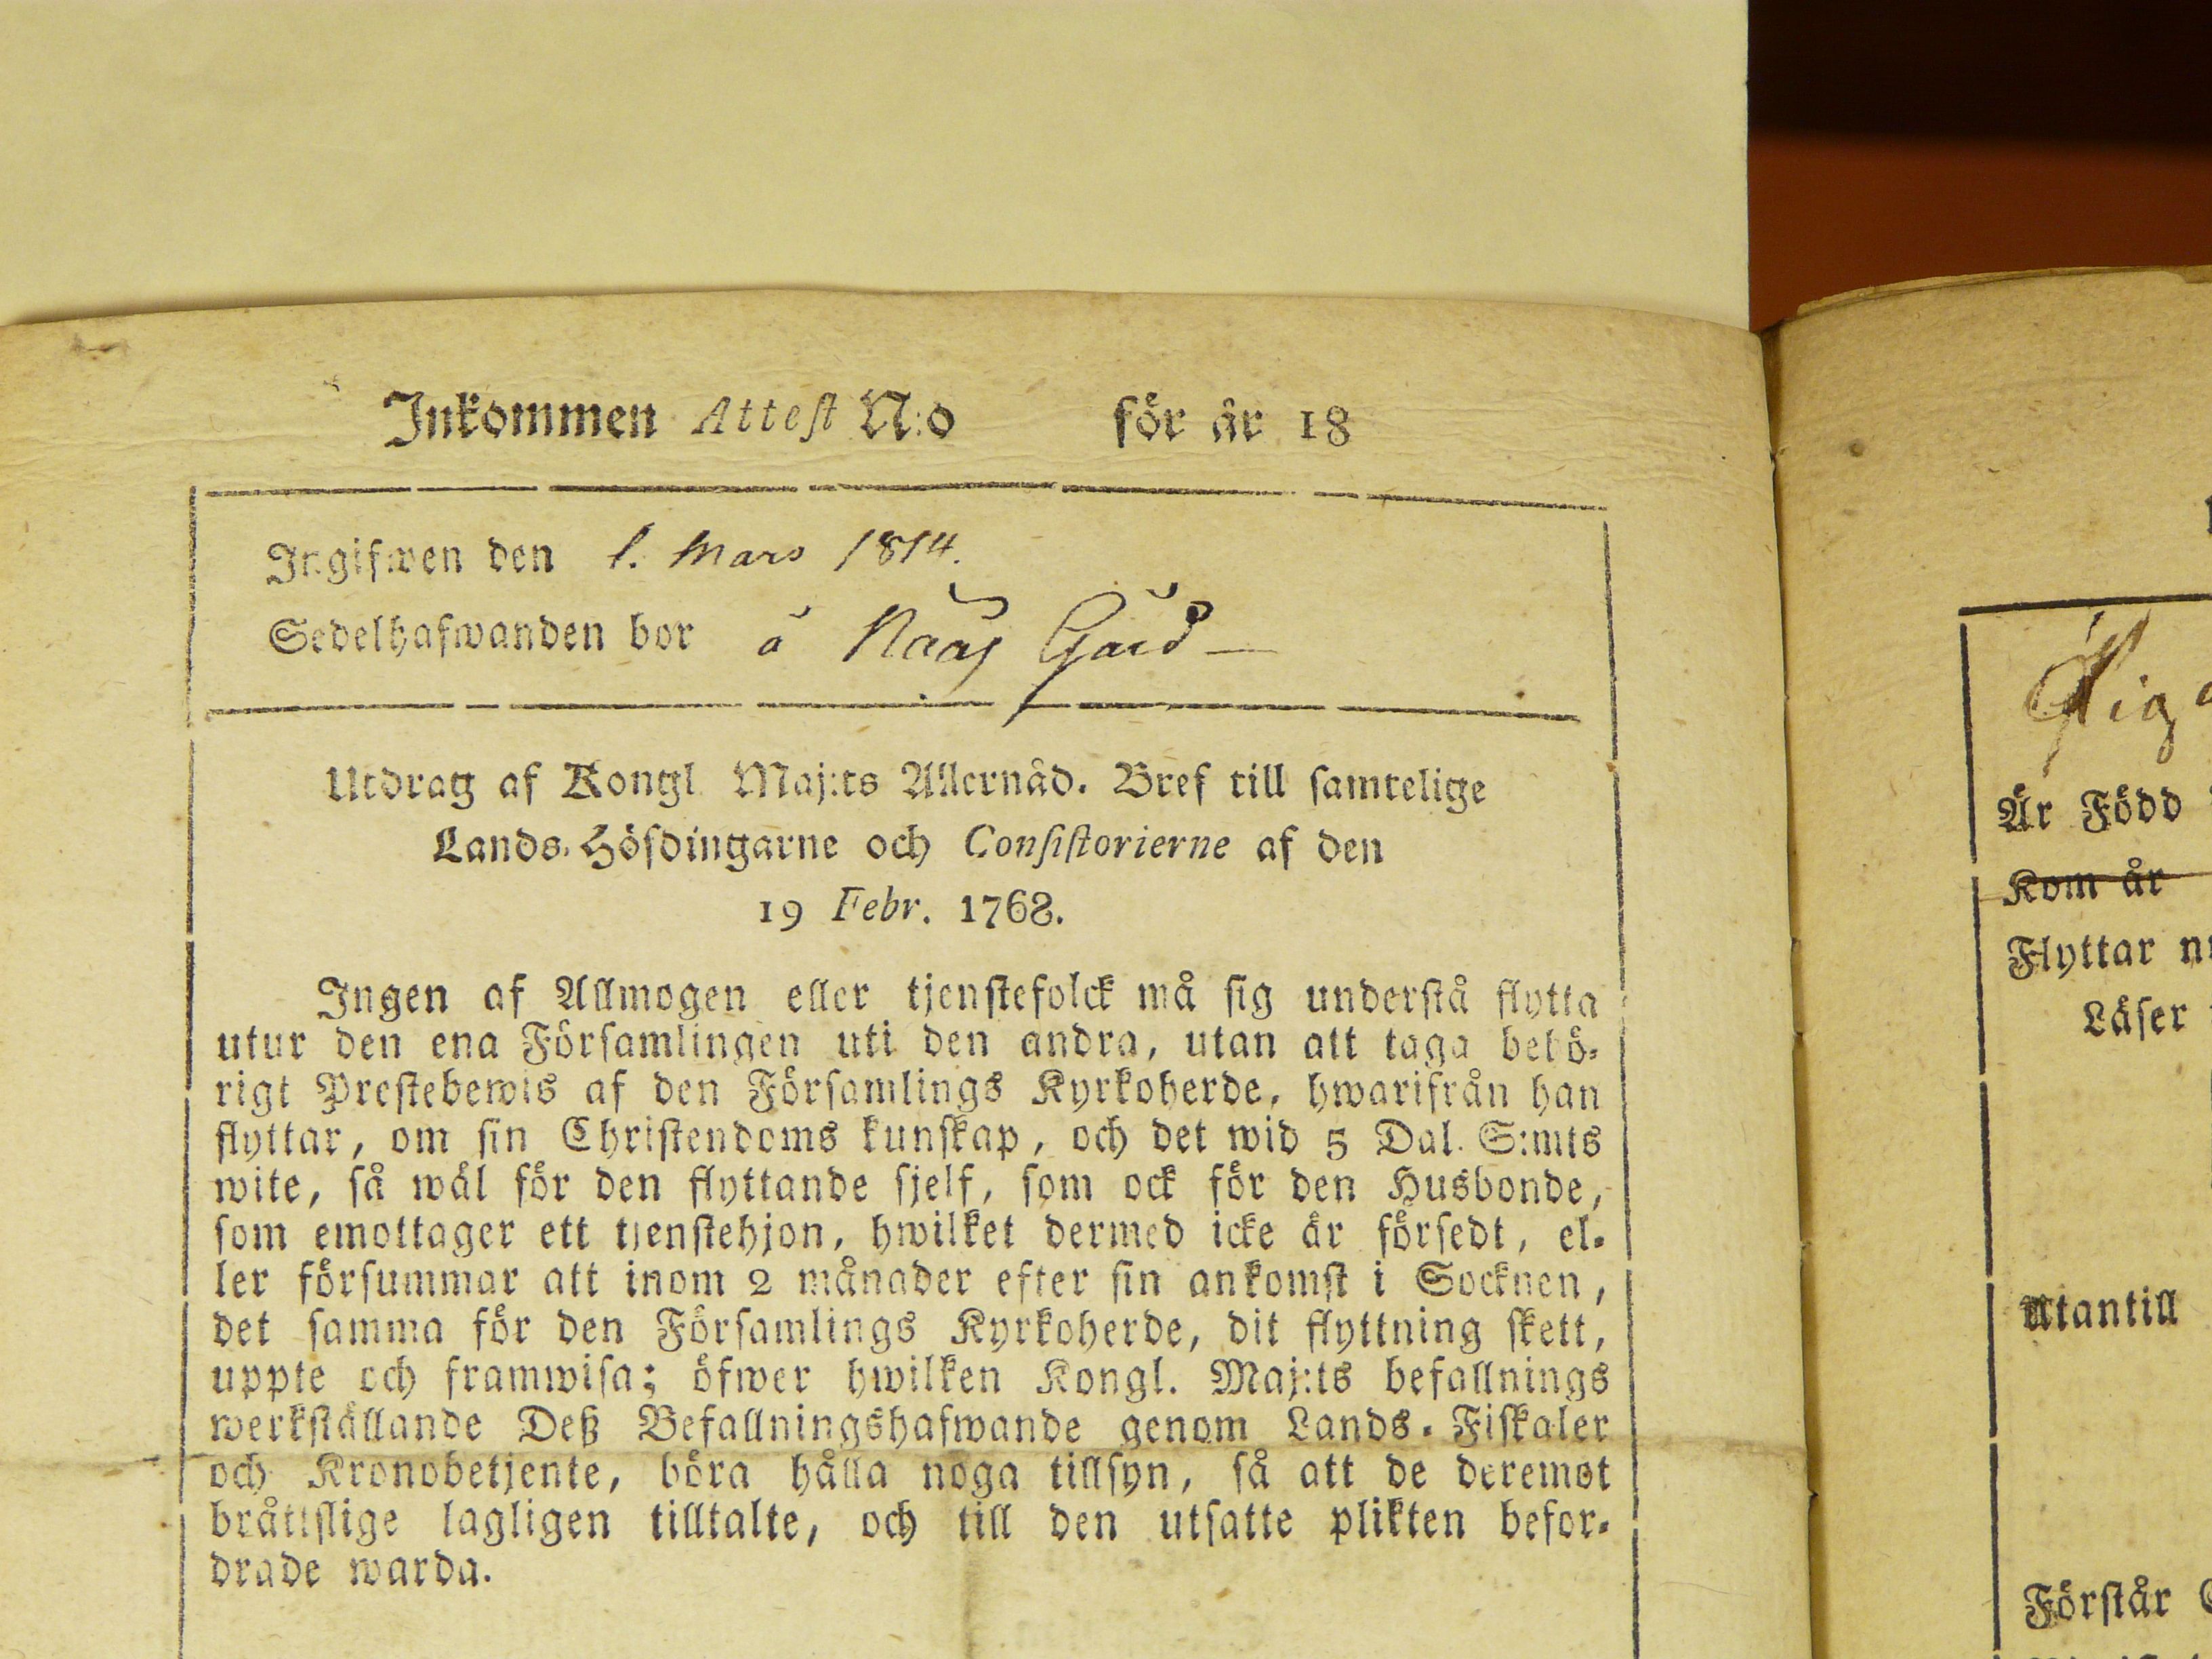 Inkommen Attest N:o för år 18
Ingifwen den 1. Mars 1814.
Sedelhafwanden bor å Nääs Gård
Utdrag af Kongl. Maj:ts Allernåd. Bref till samtelige
Lands-Höfdingarne och Consistorierne af den
19 Febr. 1768.
Ingen af Allmogen eller tjenstefolck må sig understå flytta
utur den ena Församlingen uti den andra, utan att taga behö-
rigt Prestebewis af den Församlings Kyrkoherde, hwarifrån han
flyttar, om sin Christendoms kunskap, och det wid 5 Dal. S:mts
wite, så wäl för den flyttande sjelf, som ock för den Husbonde,
som emottager ett tjenstehjon, hwilket dermed icke är försedt, el-
ler försummar att inom 2 månader efter sin ankomst i Socknen,
det samma för den Församlings Kyrkoherde, dit flyttning skett,
uppte och framwisa; öfwer hwilken Kongl. Maj:ts befallnings
werkställande Deß Befallningshafwande genom Lands-Fiskaler
och Kronobetjente, böra hålla noga tillsyn, så att de deremot
bråttslige lagligen tilltalte, och till den utsatte plikten befor-
drade warda.
Är Född
Kom år
Flyttar
Läser
Utantill
Förstår